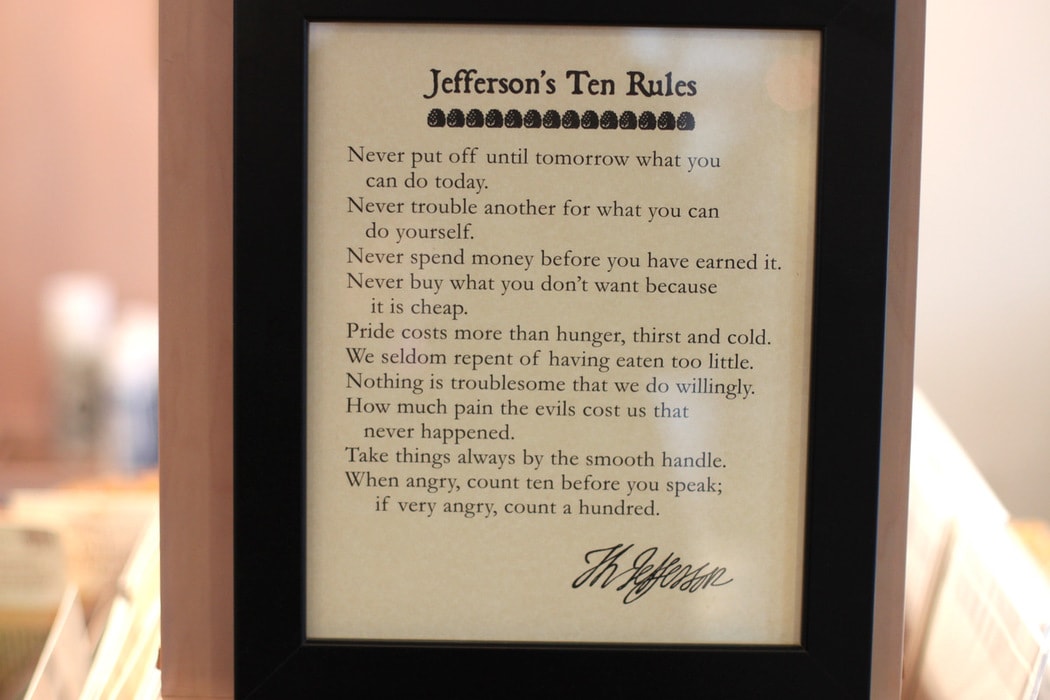 Jefferson's Ten Rules
Never put off until tomorrow what you
can do today.
Never trouble another for what you can
do yourself.
Never spend money before you have earned it.
Never buy what you don't want because
it is cheap.
Pride costs more than hunger, thirst and cold.
We seldom repent of having eaten too little.
Nothing is troublesome that we do willingly.
How much pain the evils cost us that
never happened.
Take things always by the smooth handle.
When angry, count ten before you speak;
if very angry, count a hundred.
Th Jefferson